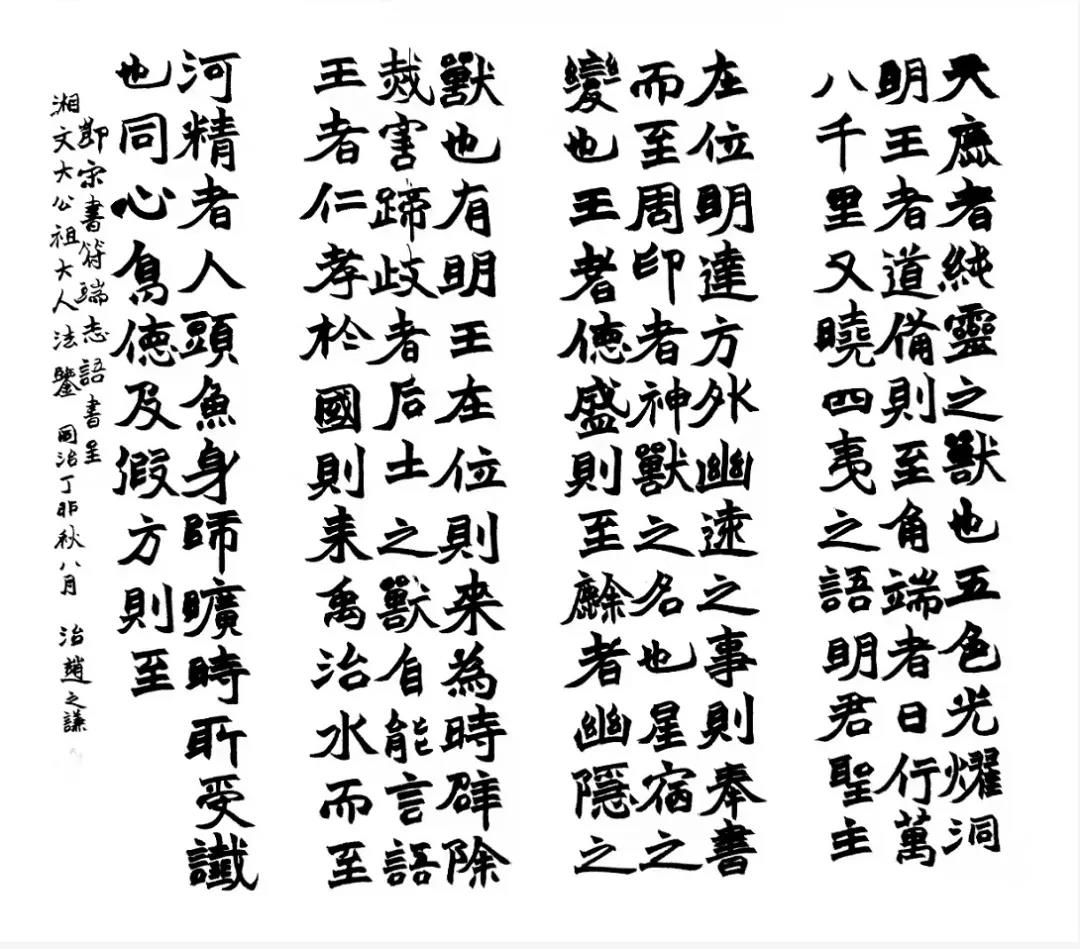 天鹿者純靈之獸也五色光燿洞
明王者道備則至角端者日行萬
八千里又曉四夷之語明君聖主
在位明達方外幽遠之事則奉書
而至周印者神獸之名也星宿之
變也王者德盛則至者幽隱之
獸也有明王在位則來為時辟除
烖害蹄歧者后土之獸自能言語
王者仁孝於國則来禹治水而至
河精者人頭魚身師曠時所受讖
也同心鳥德及假方則至
節宋書符瑞志語書呈
湘文大公祖大人法鑒 同治丁卯秋八月 治趙之謙